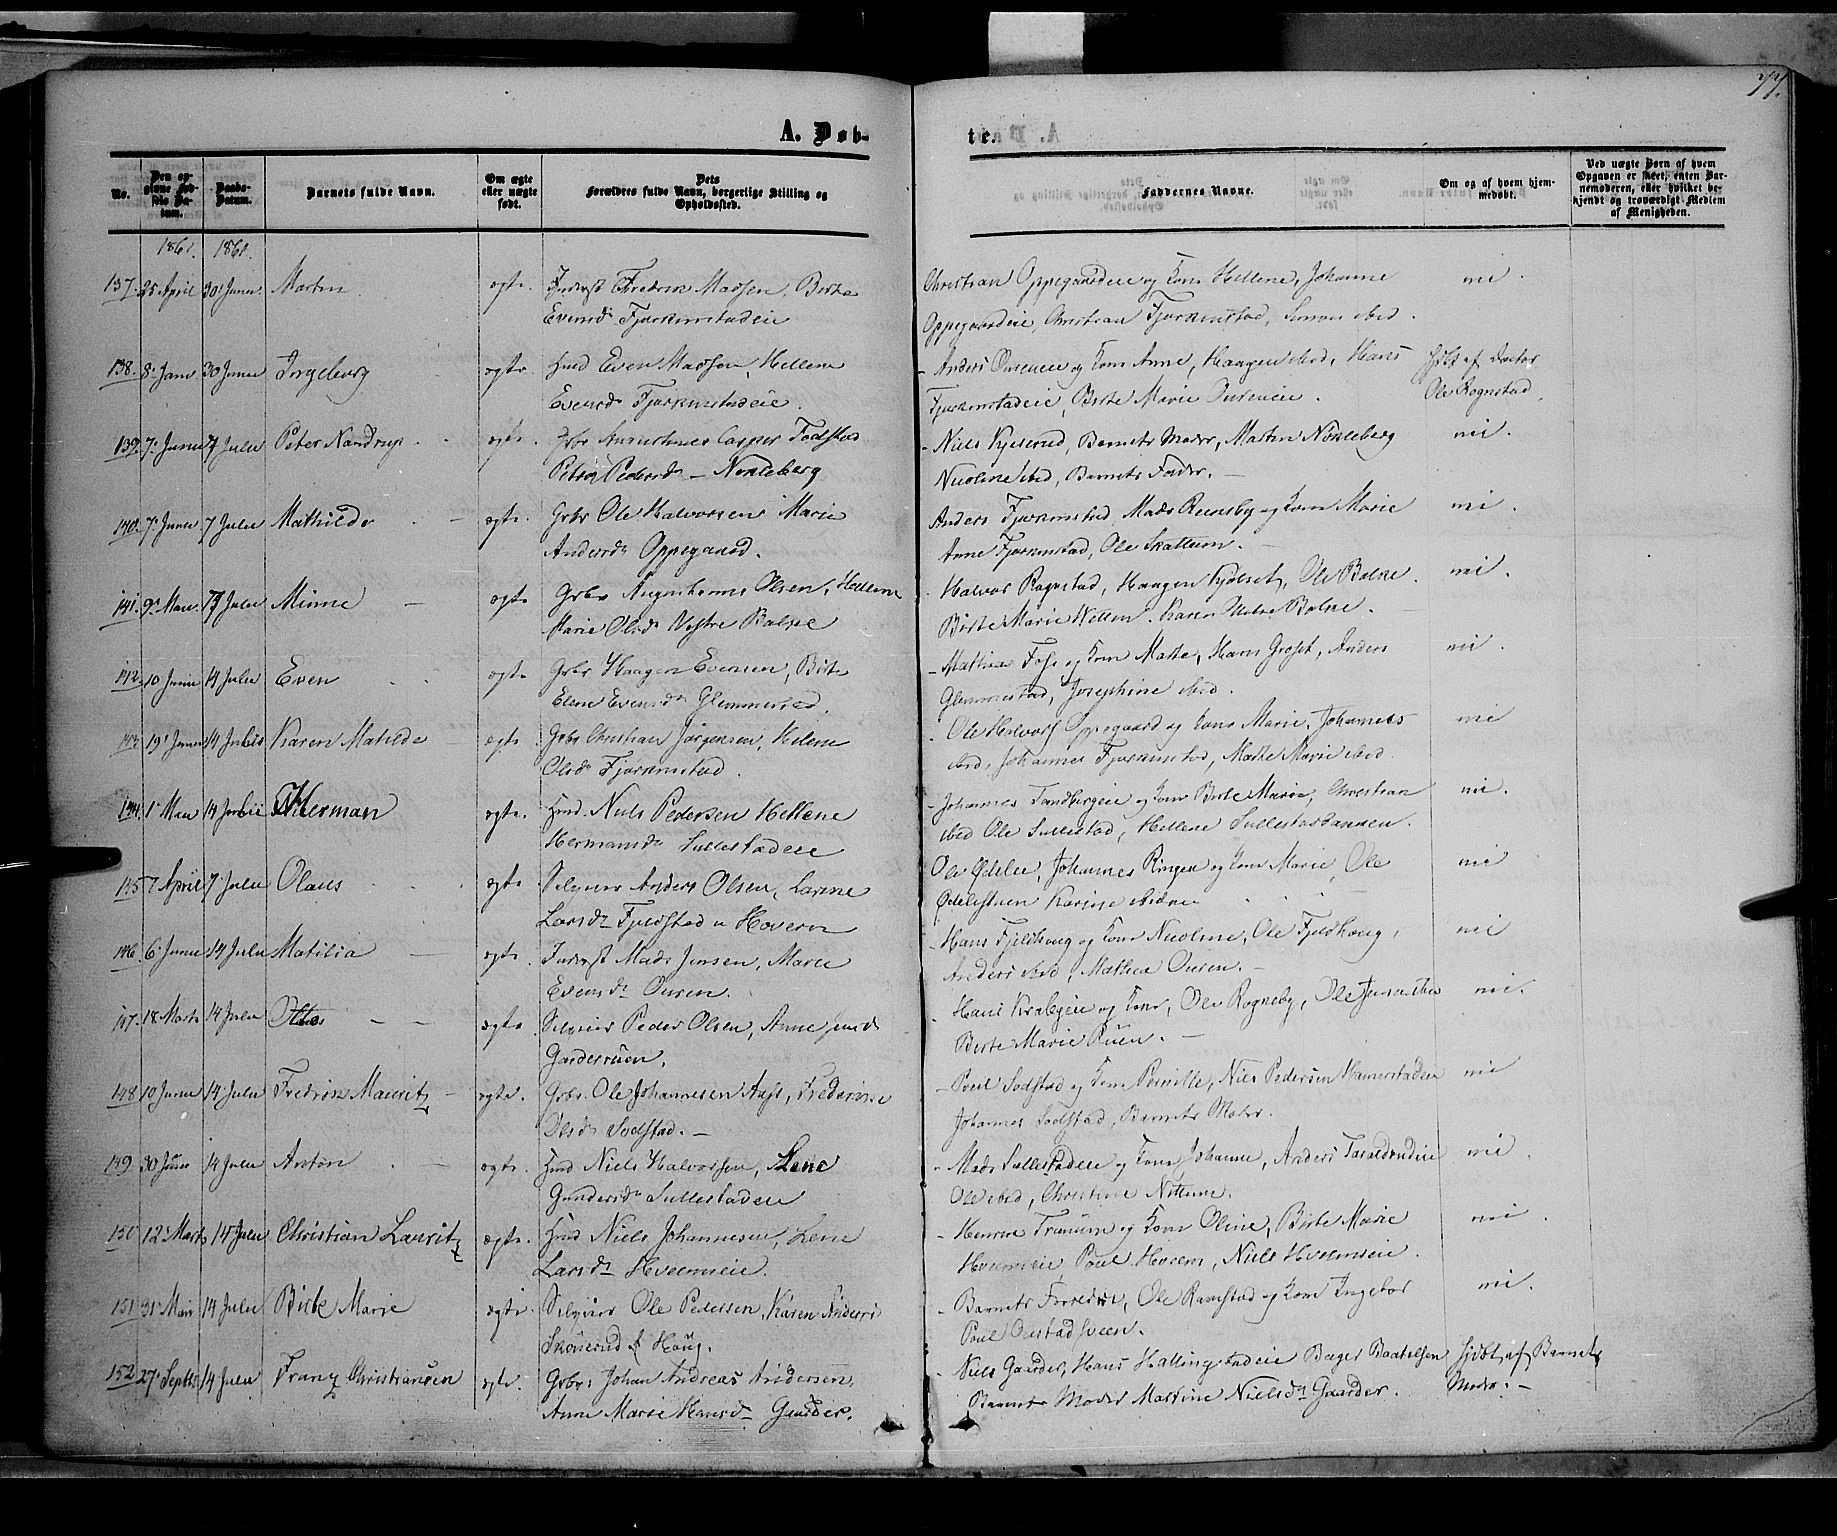 77.
A. Døb-
te.
No.
Den op-
givne Fød-
sels Da-
tum.
Daabs-
Datum.
Barnets fulde Navn.
Om ægte
eller uægte
født.
Dets
Forældres fulde Navn, borgerlige Stilling og
Opholdssted.
Faddernes Navne.
Om og af hvem hjem-
medøbt.
Ved uægte Børn af hvem
Opgaven er skeet, enten Bar-
nemoderen, eller hvilket be-
kjendt og troværdigt Medlem
af Menigheden.
1861. 1861.
137. 25 April 30 Juni Martin ægte. Inderst Fredrik Madsen, Birte
Evensdr Fjørkenstadeie
Christian Oppegaardeie og Kone Hellene, Johanne
Oppegaardeie, Christian Fjørkenstad, Simon ibid.
nei.
138. 8 30 Juni Ingeborg ægte. Husmd Even Madsen, Hellene
Evensdr Fjørkenstadeie.
- Anders Oureneie og Kone Anne, Haagen ibid, Hans
Fjørkenstadeie, Birte Marie Oureneie.
Hjdbt af Doctor
Ole Rognstad.
139. 7 Juni 7 Julii Peter Nandrup ægte. Grbr Casper Fodstad
Petra Pedersdr - Nøkleberg
- Niels Kjeserud, Barnets Moder, Martin Nøkleberg
Nicoline ibid, Barnets Fader. -
nei.
140. 7 Juni 7 Julii Mathilde ægte. Grbr Ole Halvorsen Marie
Andersdr Oppegaard.
Anders Fjørkenstad, Mads Reinsby og Kone Marie
Anne Fjørkenstad, Ole Skattum. -
nei.
141. 9 Mai 7 Julii Minne - ægte Grbr Olsen, Hellene
Marie Olsdr Vestre Balke
Halvor Rognstad, Haagen Kydset, Ole Balke.
Birte Marie Hellen. Karen Balke.
nei.
142. 10 Junii 14 Julii Even ægte Grbr Haagen Evensen, Birte
Elene Evensdr Glemmestad.
- Mathias Foss og Kone Mathe, Hans Groset, Anders
Glemmestad, Josephine ibid.
nei.
143. 19 Juni 14 Julii Karen Matilde - ægte. Grbr Christian Jørgensen, Helene
Olsdr Fjørkenstad.
- Ole Halvors Oppegaard og Kone Marie, Johannes
ibid, Johannes Fjørkenstad, Mathe Marie ibid.
nei
144. 1 Mai 14 Julii Herman ægte. Husmd Niels Pedersen Hellene
Hermansdr Sullestadeie
- Johannes Sandbergeie og Kone Birte Marie, Christian
ibid Ole Sullestad, Hellene
nei.
145 7 April 7 Julii Olaus ægte Selveier Anders Olsen, Larine
Larsdr Fjeldstad u Hovern
Ole Ødelie, Johannes Ringen og Kone Marie, Ole
Karine
nei
146. 6 Juni 14 Julii Matilia - ægte. Inderst Mads Jensen, Marie
Evensdr Ouren.
- Hans Fjeldhaug og Kone Nicoline, Ole Fjeldhaug,
Anders ibid, Mathea Ouren. -
nei
147. 18 Marts 14 Julii - - ægte Selveier Peder Olsen, Anne
- Hans og Kone, Ole Rogneby, Ole
Birte Marie Ruen. -
nei.
148 10 Juni 14 Julii Fredrik Mauritz - ægte. Grbr. Ole Johannesen Aass, Frederikke
Olsdr Sodstad. -
- Poul Sodstad og Kone Pernille, Niels Pedersen Hamerstadeie
Johannes Sodstad, Barnets Moder.
nei
149. 30 14 Julii Anton - ægte. Husmd Niels Halvorsen, Lene
Gundersdr Sullestadeie
- Mads Sullestadeie og Kone Johanne, Anders
Ole ibid, Christine Nettum.
nei.
150 12 Marts 14 Julii Christian Lauritz ægte. Husmd Niels Johannesen, Lene
Larsdr Hveemeie.
- Henrik Tranum og Kone Oline, Birte Marie
Hveemeie Poul Hveem, Niels Hveemseie.
nei.
151 31 Mai 14 Julii Birte Marie ægte. Selveier Ole Pedersen, Karen Andersdr
Skønerud f Haug.
- Barnets Forældre, Ole Ramstad og Kone Ingebor
Poul Oustadsveen.
nei.
152 27 Septbr 14 Julii Franz Christiansen ægte. Grbr. Johan Andreas Andersen,
Anne Marie Hansdr Gaarder.
- Niels Gaarder, Hans Hallingstadeie
Barnets Moder Martine Nielsdr Gaarder.
Hjdbt af Barnets
Moder. -